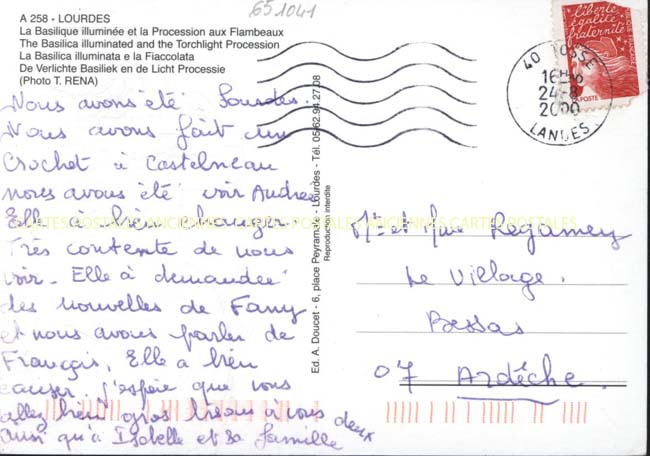 651041
A 258 - LOURDES
La Basilique illuminée et la Procession aux Flambeaux
The Basilica illuminated and the Torchlight Procession
La Basilica illuminata e la Fiaccolata
De Verlichte Basiliek en de Licht Processie
(Photo T. RENA)
Nous avons été Lourdes.
Nous avons fait un
Crochet à Castelneau
nous avons été voir Andree
Elle à bien changer
Très contente de nous
voir - Elle à demandée
des nouvelles de Fany
et nous avons parler de
Français, Elle a bien
causer. J'espère que vous
allez bien gros bisous à vous deux
ainsi qu'à Isabelle et sa famille
Ed. A. Doucet - 6, place Peyramale - Lourdes - Tél. 05.62.94.27.08
Reproduction interdite
liberté
égalité
fraternité
LA POSTE
40 TOSSE
16H
24-8
2000
LANDES
Mr et Mme Regamey
Le Village.
Bessas
07 Ardèche.
CARTES POSTALES ANCIENNES CARTES POSTALES ANCIENNES CARTES POSTALES